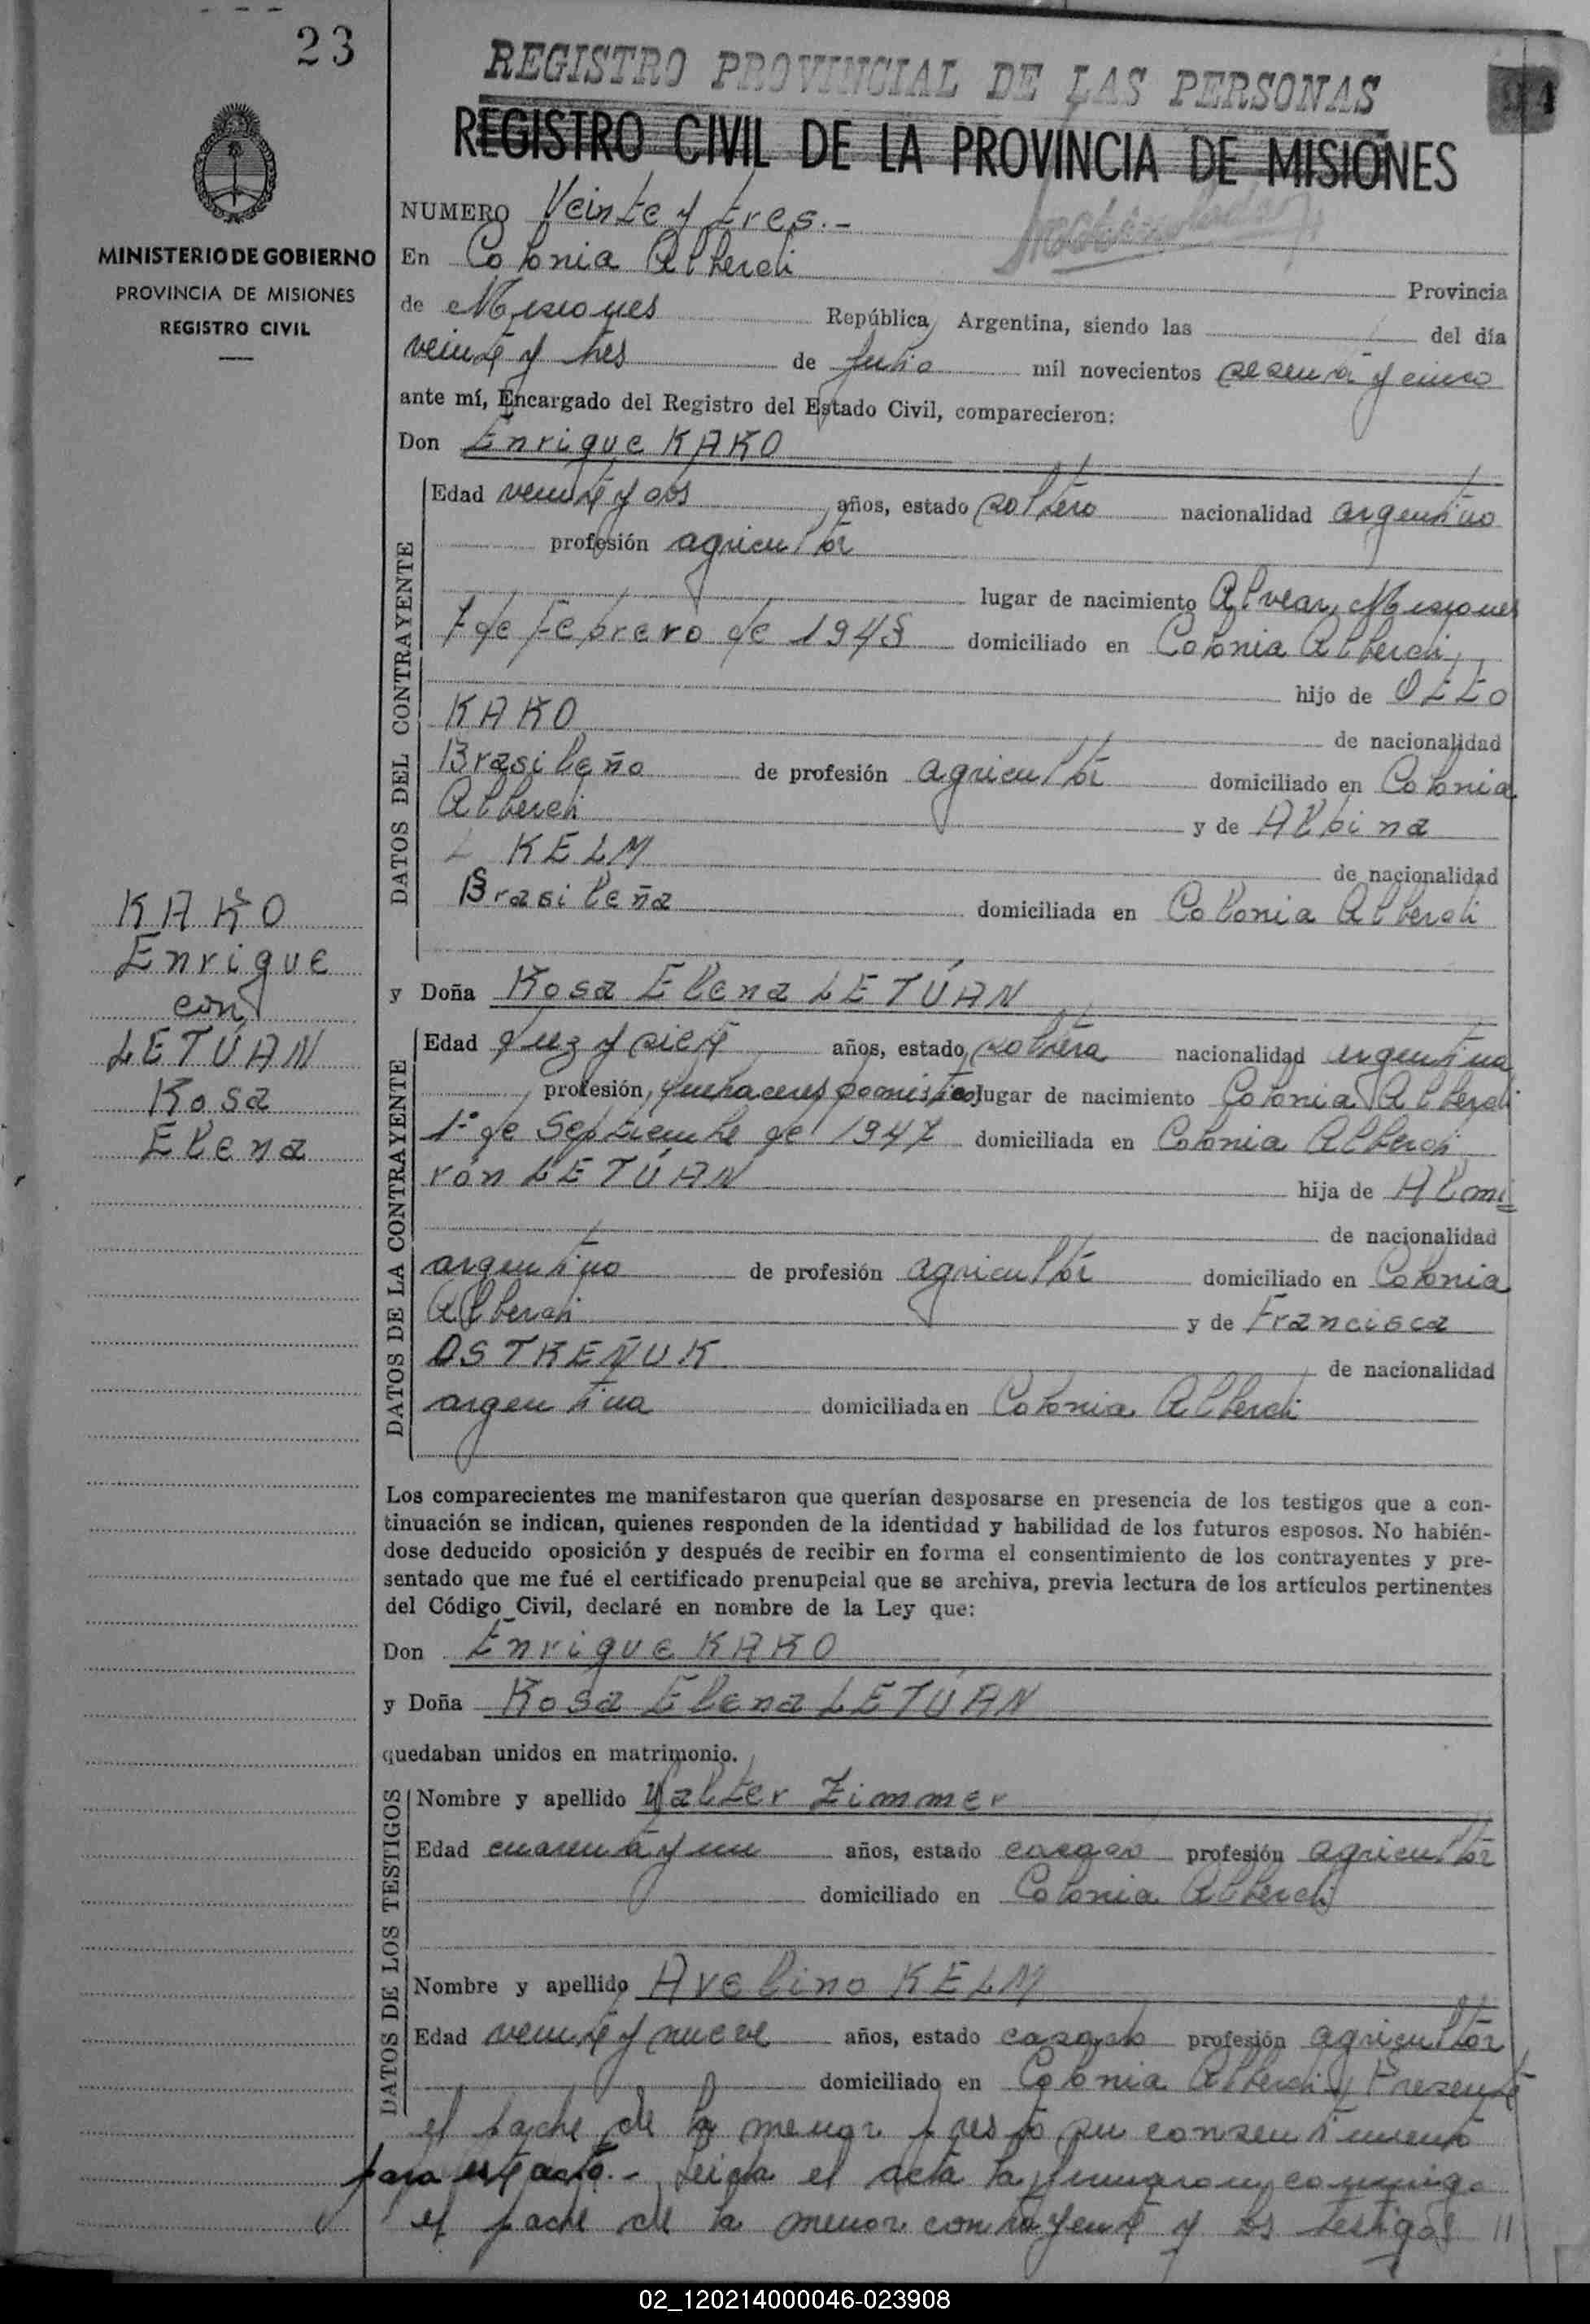 23
REGISTRO PROVINCIAL DE LAS PERSONAS
REGISTRO CIVIL DE LA PROVINCIA DE MISIONES
MINISTERIO DE GOBIERNO
PROVINCIA DE MISIONES
REGISTRO CIVIL
NUMERO Veinte y tres.-
En Colonia Alberdi
Provincia
de Misiones República Argentina, siendo las del día
veinte y tres de Julio mil novecientos sesenta y cinco
ante mí, Encargado del Registro del Estado Civil, comparecieron:
Don Enrique KAKO
DATOS DEL CONTRAYENTE
Edad veinte y dos años, estado soltero nacionalidad argentino
profesión agricultor
lugar de nacimiento Alvear, Misiones
7 de Febrero de 1943 domiciliado en Colonia Alberdi,
hijo de Otto
KAKO
de nacionalidad
Brasileño de profesión agricultor domiciliado en Colonia
Alberdi y de Albina
KELM
de nacionalidad
Brasileña domiciliada en Colonia Alberdi
KAKO
Enrique
con
LETÚAN
Rosa
Elena
y Doña Rosa Elena LETÚAN
DATOS DE LA CONTRAYENTE
Edad diez y siete años, estado soltera nacionalidad argentina
profesión, quehaceres domésticos lugar de nacimiento Colonia Alberdi
1º de Septiembre de 1947 domiciliada en Colonia Alberdi
hija de Almi=
rón LETÚAN
de nacionalidad
argentino de profesión agricultor domiciliado en Colonia
Alberdi y de Francisca
OSTREÑUK
de nacionalidad
argentina domiciliada en Colonia Alberdi
Los comparecientes me manifestaron que querían desposarse en presencia de los testigos que a con-
tinuación se indican, quienes responden de la identidad y habilidad de los futuros esposos. No habién-
dose deducido oposición y después de recibir en forma el consentimiento de los contrayentes y pre-
sentado que me fué el certificado prenupcial que se archiva, previa lectura de los artículos pertinentes
del Código Civil, declaré en nombre de la Ley que:
Don Enrique KAKO
y Doña Rosa Elena LETÚAN
quedaban unidos en matrimonio.
DATOS DE LOS TESTIGOS
Nombre y apellido Walter Zimmer
Edad cuarenta y un años, estado casado profesión agricultor
domiciliado en Colonia Alberdi
Nombre y apellido Avelino KELM
Edad veinte y nueve años, estado casado profesión agricultor
domiciliado en Colonia Alberdi y Presente
el padre de la menor prestó su consentimiento
para este acto.- Leida el acta la firmaron conmigo
el padre de la menor contrayente y los testigos //
02_120214000046-023908